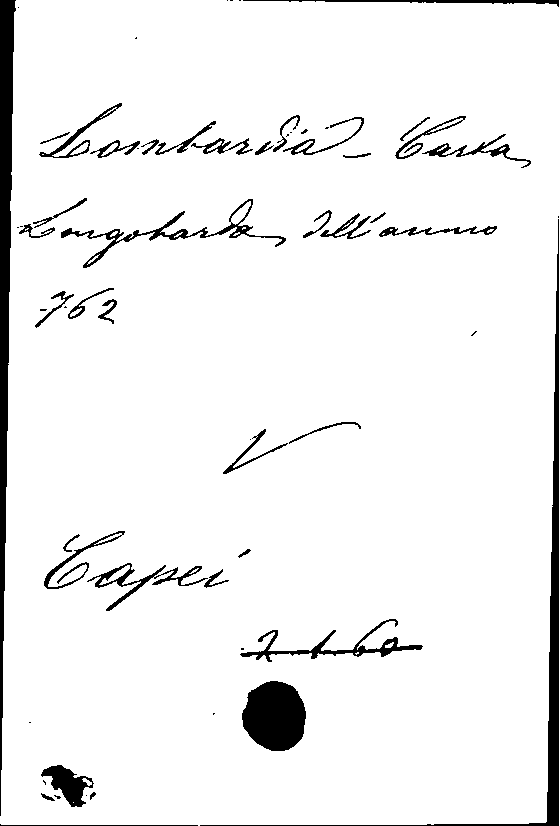 Lombardia - Carta
Longobarda dell'anno
762
V
Capei
2. 1. 60